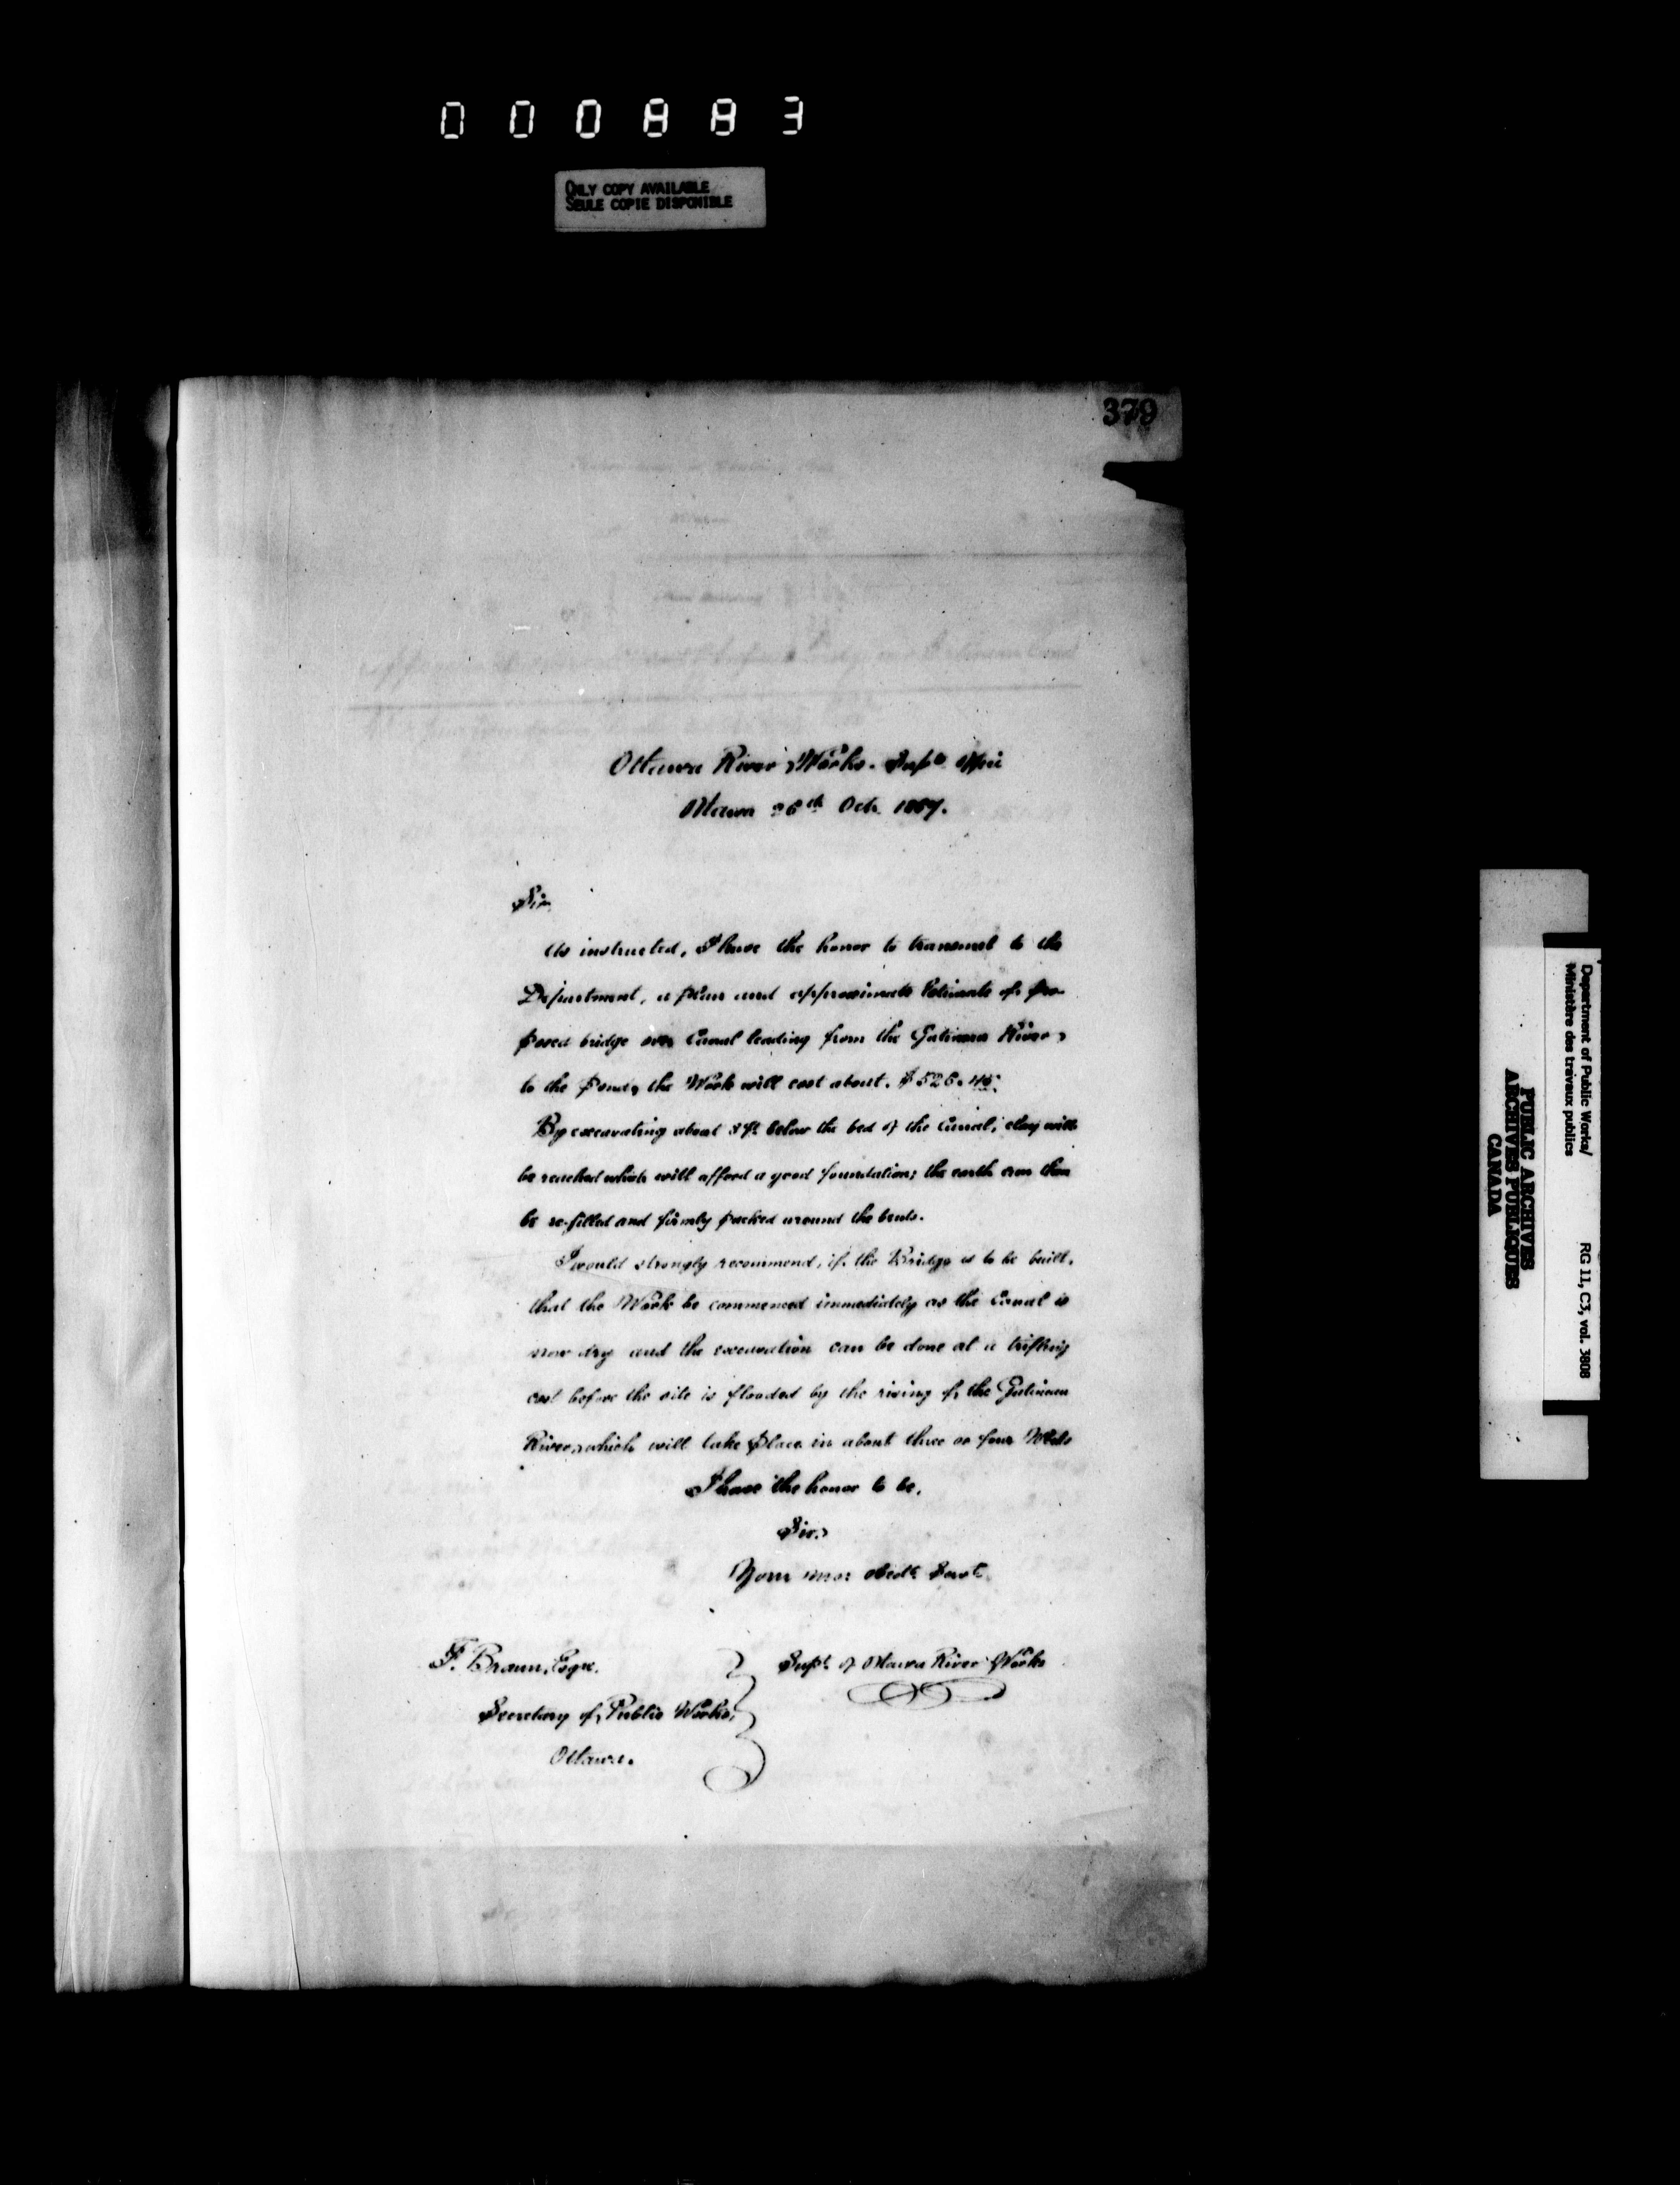 000883
ONLY COPY AVAILABLE
SEULE COPIE DISPONIBLE
379
Ottawa River Works. Supts Offi
Ottawa 26th Oct. 1867.
Sir,
As instructed, I have the honor to transmit to the
Department, a plan and approximate Estimate of pro-
posed bridge over Canal leading from the Gatineau River,
to the Pond, the Work will cost about. $526.45.
By excavating about 3 ft. below the bed of the Canal, clay will
be reached which will afford a good foundation; the earth can then
be re-filled and firmly packed around the bents.
I would strongly recommend, if the Bridge is to be built,
that the Work be commenced immediately as the Canal is
now dry and the excavation can be done at a trifling
cost before the site is flooded by the rising of the Gatineau
River, which will take place in about three or four Weeks
I have the honor to be,
Sir,
Your mos obedt Servt.
Supt. of Ottawa River Works
F. Braun, Esqre.
Secretary of Public Works,
Ottawa.
Department of Public Works/
Ministère des travaux publics
RG 11, C3, vol. 3808
PUBLIC ARCHIVES
ARCHIVES PUBLIQUES
CANADA